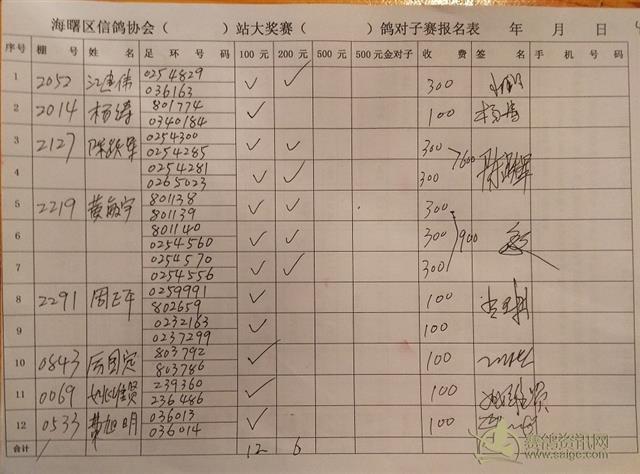 海曙区信鸽协会（ ）站大奖赛（ ）鸽对子赛报名表 年 月 日
序号 棚号 姓名 足环号码 100元 200元 500元 500元金对子 收费 签名 手机号码
1 2052 江建伟 0254829 ✓ ✓ 300
036163
2 2014 杨涛 801774 ✓ 100 杨涛
0340184
3 2127 0254300 ✓ ✓ 300
0254285 600
4 0254281 ✓ ✓ 300
0265023
5 2219 黄敏宇 801138 ✓ ✓ 300
801139
6 801140 ✓ ✓ 300 900
0254560
7 0254570 ✓ ✓ 300
0254556
8 2291 周正平 0259991 ✓ 100
802659
9 0232163 ✓ 100
0237299
10 0843 803792 ✓ 100
803786
11 0069 239360 ✓ 100
236486
12 0533 036013 ✓ 100
036014
合计 12 6
赛鸽资讯网
www.saige.com